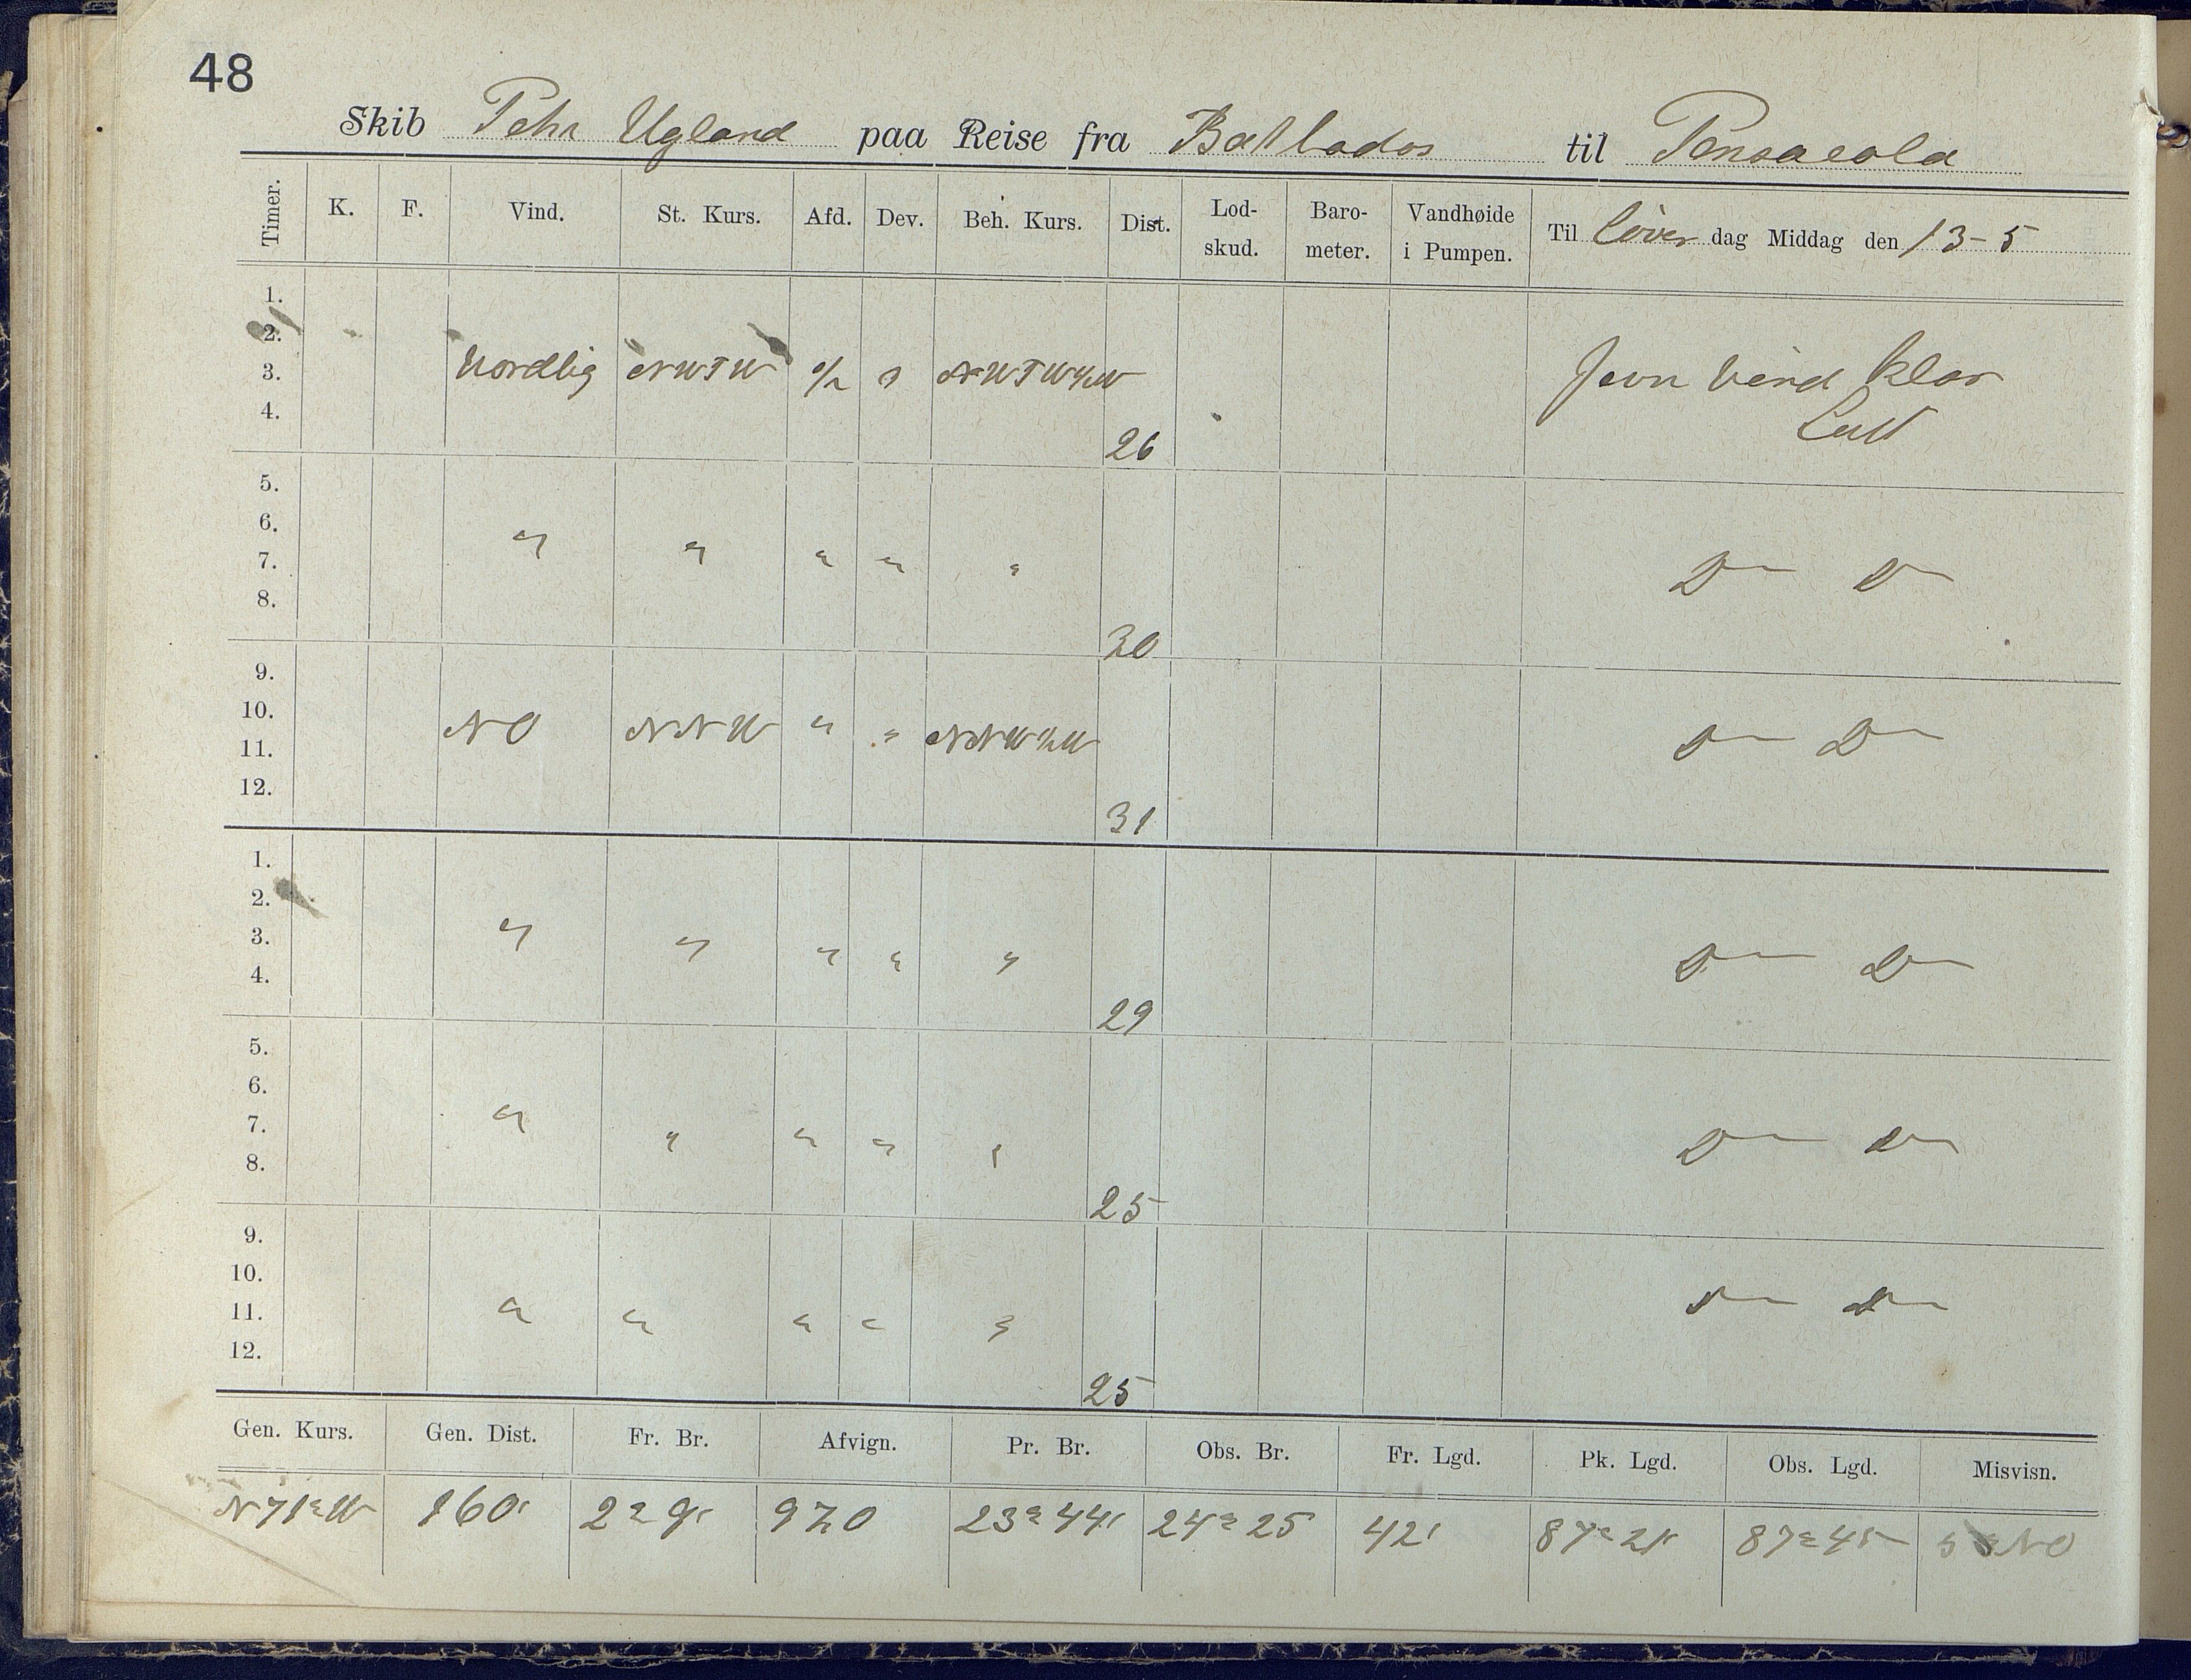 48
Skib Pehr Ugland paa Reise fra Barbados til Pensacola
Timer. K. F. Vind. St. Kurs. Afd. Dev. Beh. Kurs. Dist. Lod-skud. Baro-meter. Vandhøide i Pumpen. Til Löver dag Middag den 13-5
1.
2.
3. Nordlig NWTW 1/2 NWTW1/2W Jevn vind klar
4. Luft
26
5.
6. " " " " " D— D—
7.
8.
30
9.
10. NO NNW " " NNW1/2W D— D—
11.
12.
31
1.
2.
3. " " " " " D— D—
4.
29
5.
6.
7. " " " " " D— D—
8.
25
9.
10.
11. " " " " " D— D—
12.
25
Gen. Kurs. Gen. Dist. Fr. Br. Afvign. Pr. Br. Obs. Br. Fr. Lgd. Pk. Lgd. Obs. Lgd. Misvisn.
N71°W 160' 2° 9' 23° 44' 24° 25 42' 87° 45